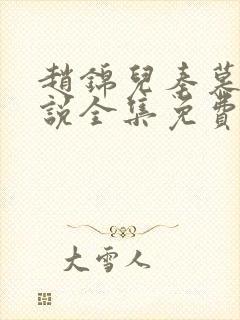 趙錦兒秦慕
說全集免費
大雪人